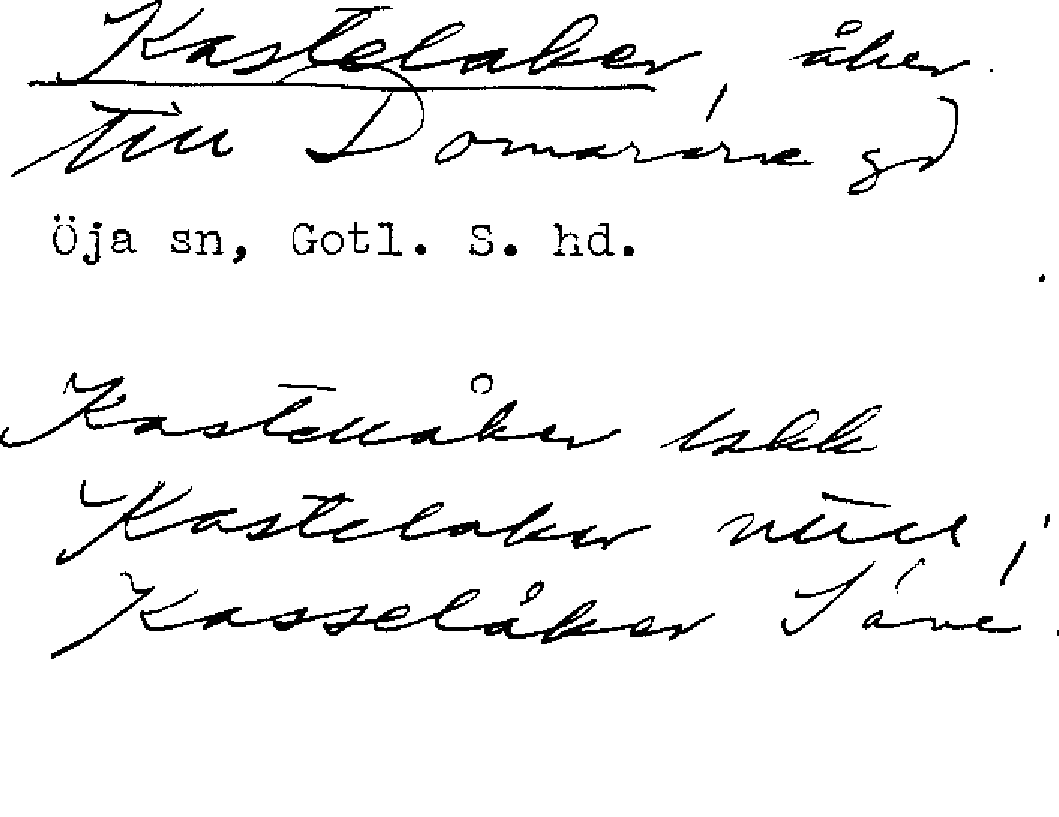 Kastelaker, åker
till Domarärve gd
Öja sn, Gotl. S. hd.
Kastellåker lskk
Kastelaker
Kasselåker Säve